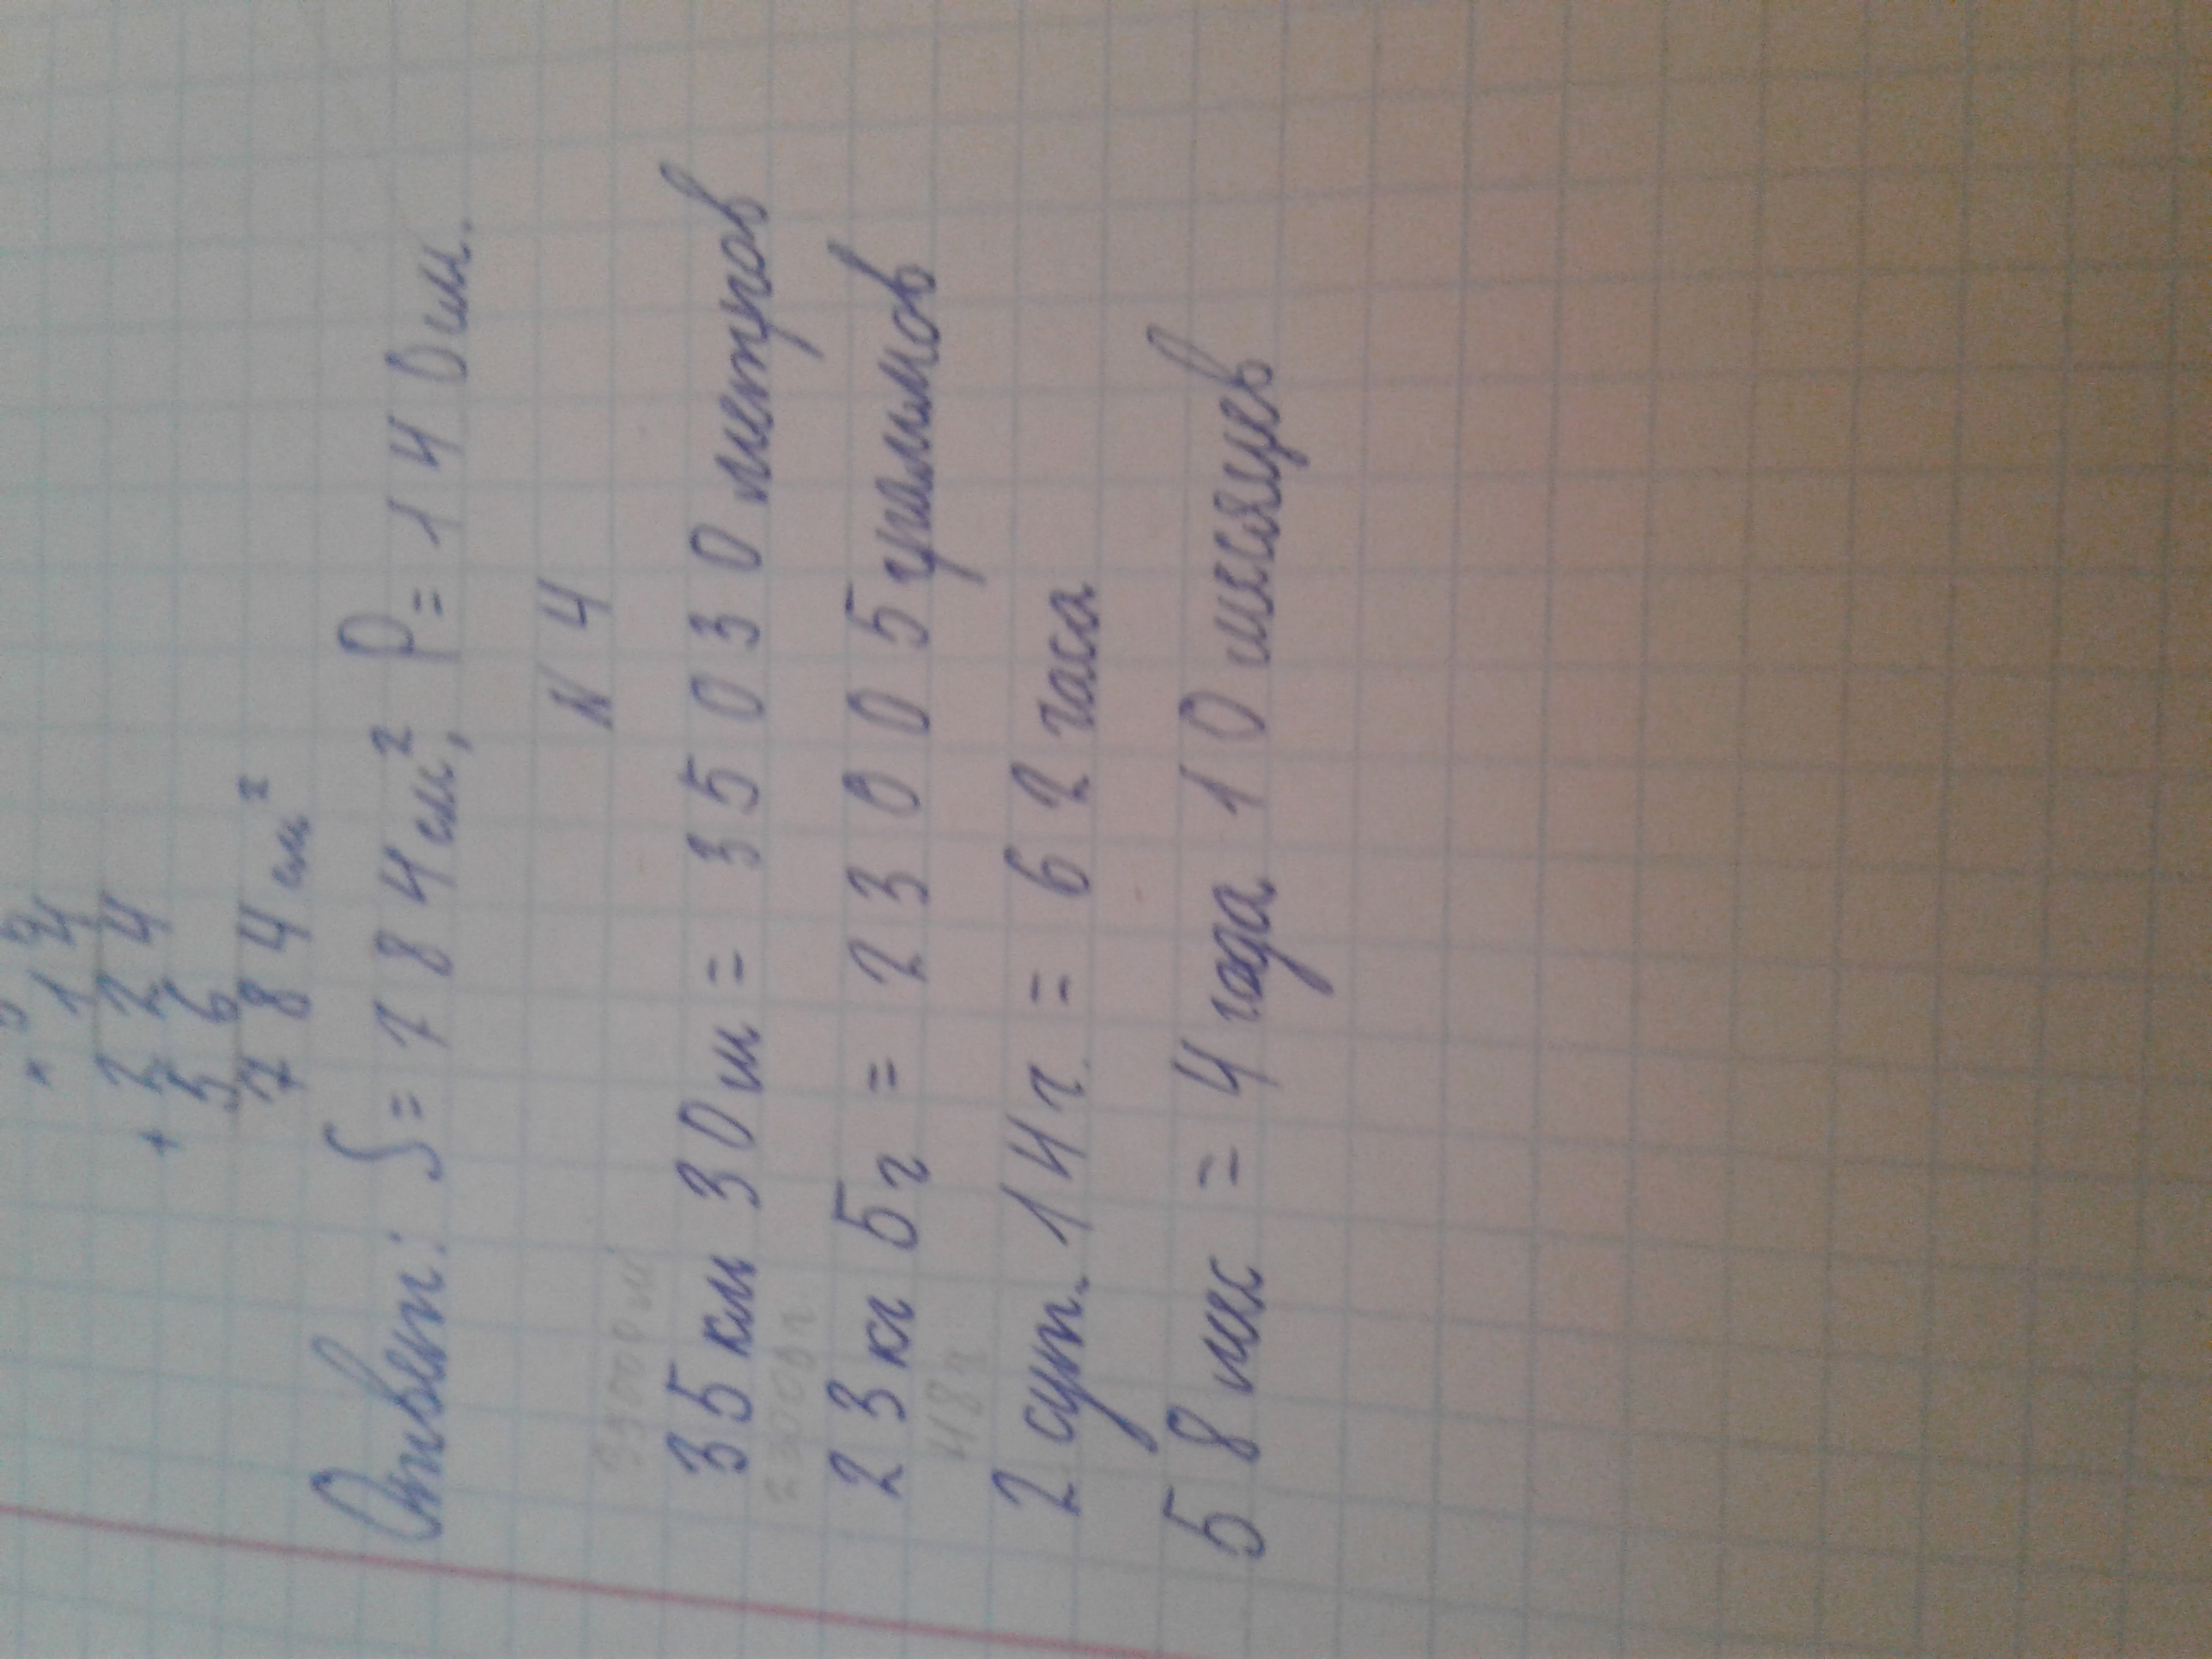 × 14
+ 224
56
784 см²
Ответ: S = 784 см², P = 140 см.
N 4
35000 м
35 км 30 м = 35030 метров
23000 г
23 кг 5 г = 23005 граммов
48 ч
2 сут. 14 ч. = 62 часа
58 мес = 4 года 10 месяцев